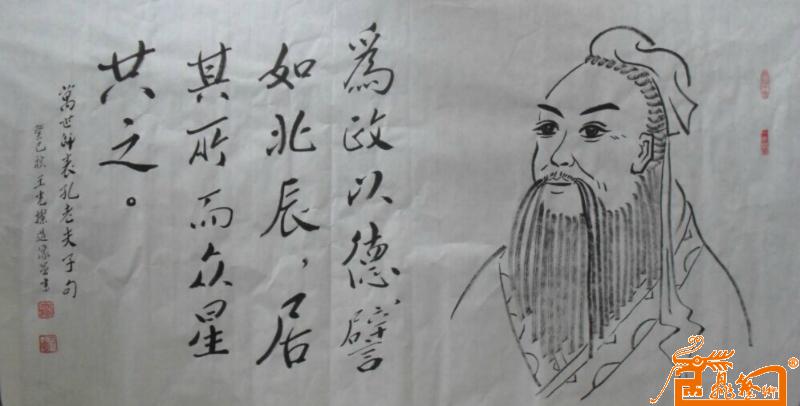 爲政以德，譬
如北辰，居
其所而众星
共之。
萬世師表孔老夫子句
癸巳秋王